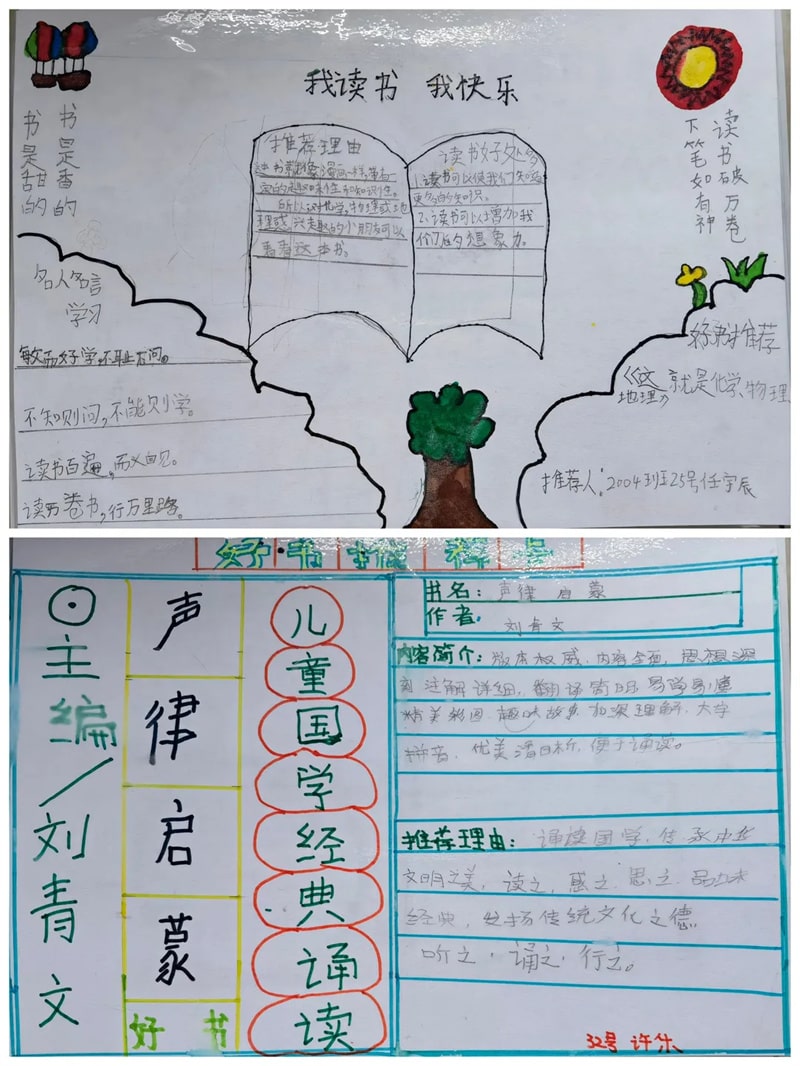 我读书 我快乐
书是香的
书是甜的
读书破万卷
下笔如有神
推荐理由
这书籍像漫画一样带有一
定的趣味性和知识性。
所以对化学，物理或地
理感兴趣的小朋友可以
看看这本书。
读书好处多
1.读书可以使我们知道
更多的知识。
2.读书可以增加我
们的想象力。
名人名言
学习
敏而好学，不耻下问。
不知则问，不能则学。
读书百遍，而义自见。
读万卷书，行万里路。
好书推荐
《这就是化学、物理
地理》
推荐人：2004班25号任宇辰
好书推荐
主编／刘青文
声律启蒙
好书
儿童国学经典诵读
书名：声律启蒙
作者：刘青文
内容简介：版本权威、内容全面，思想深
刻 注解详细，翻译简明 易学易懂
精美彩图 趣味故事 加深理解，大字
拼音、优美 便于诵读。
推荐理由：诵读国学，传承中华
文明之美，读之，感之，思之，品味
经典，发扬传统文化之德
听之，诵之，行之。
32号 许乐